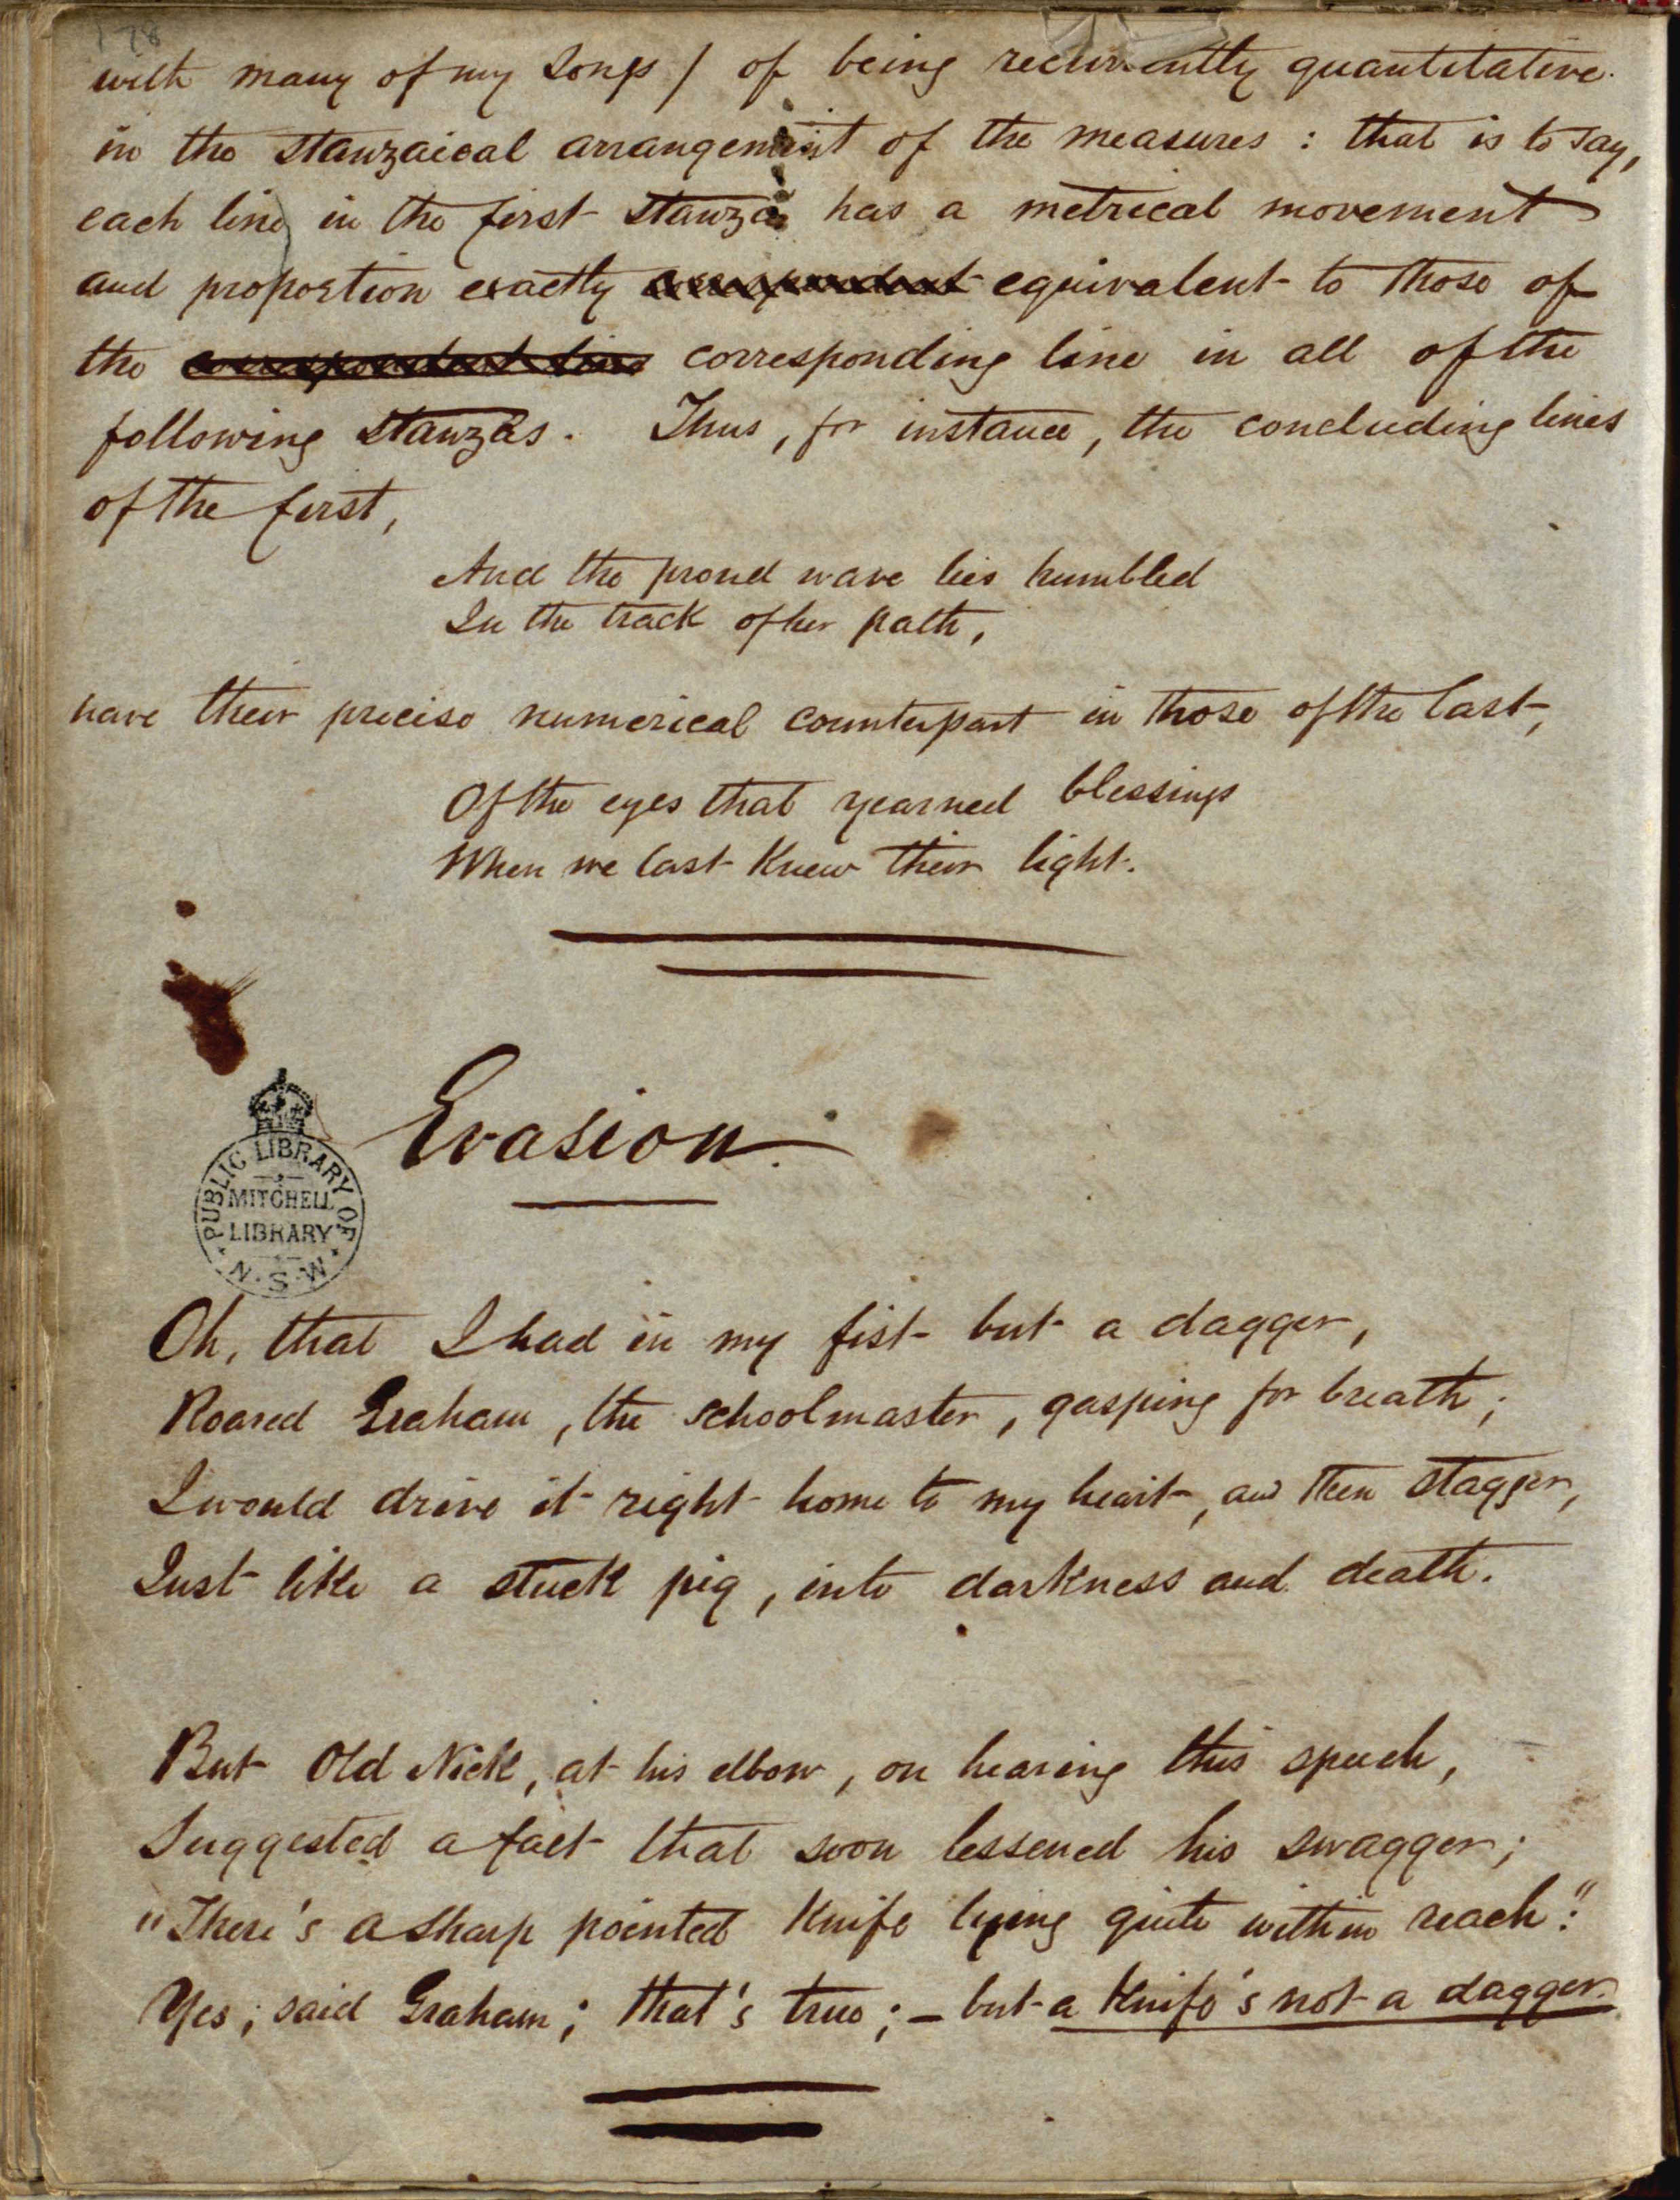 178
with many of my songs / of being recurrently quantitative
in the stanzaical arrangement of the measures : that is to say,
each line in the first stanza has a metrical movement
and proportion exactly correspondent equivalent to those of
the correspondent line corresponding line in all of the
following stanzas. Thus, for instance, the concluding lines
of the first,
And the proud wave lies humbled
In the track of her path,
have their precise numerical counterpart in those of the last,
Of the eyes that yearned blessings
When we last knew their light.
Evasion.
PUBLIC LIBRARY OF
MITCHELL
LIBRARY
N.S.W
Oh, that I had in my fist but a dagger,
Roared Graham, the schoolmaster, gasping for breath;
I would drive it right home to my heart, and then stagger,
Just like a stuck pig, into darkness and death.
But Old Nick, at his elbow, on hearing this speech,
Suggested a fact that soon lessened his swagger;
"There's a sharp pointed knife lying quite within reach:"
Yes; said Graham; that's true; – but a knife's not a dagger.